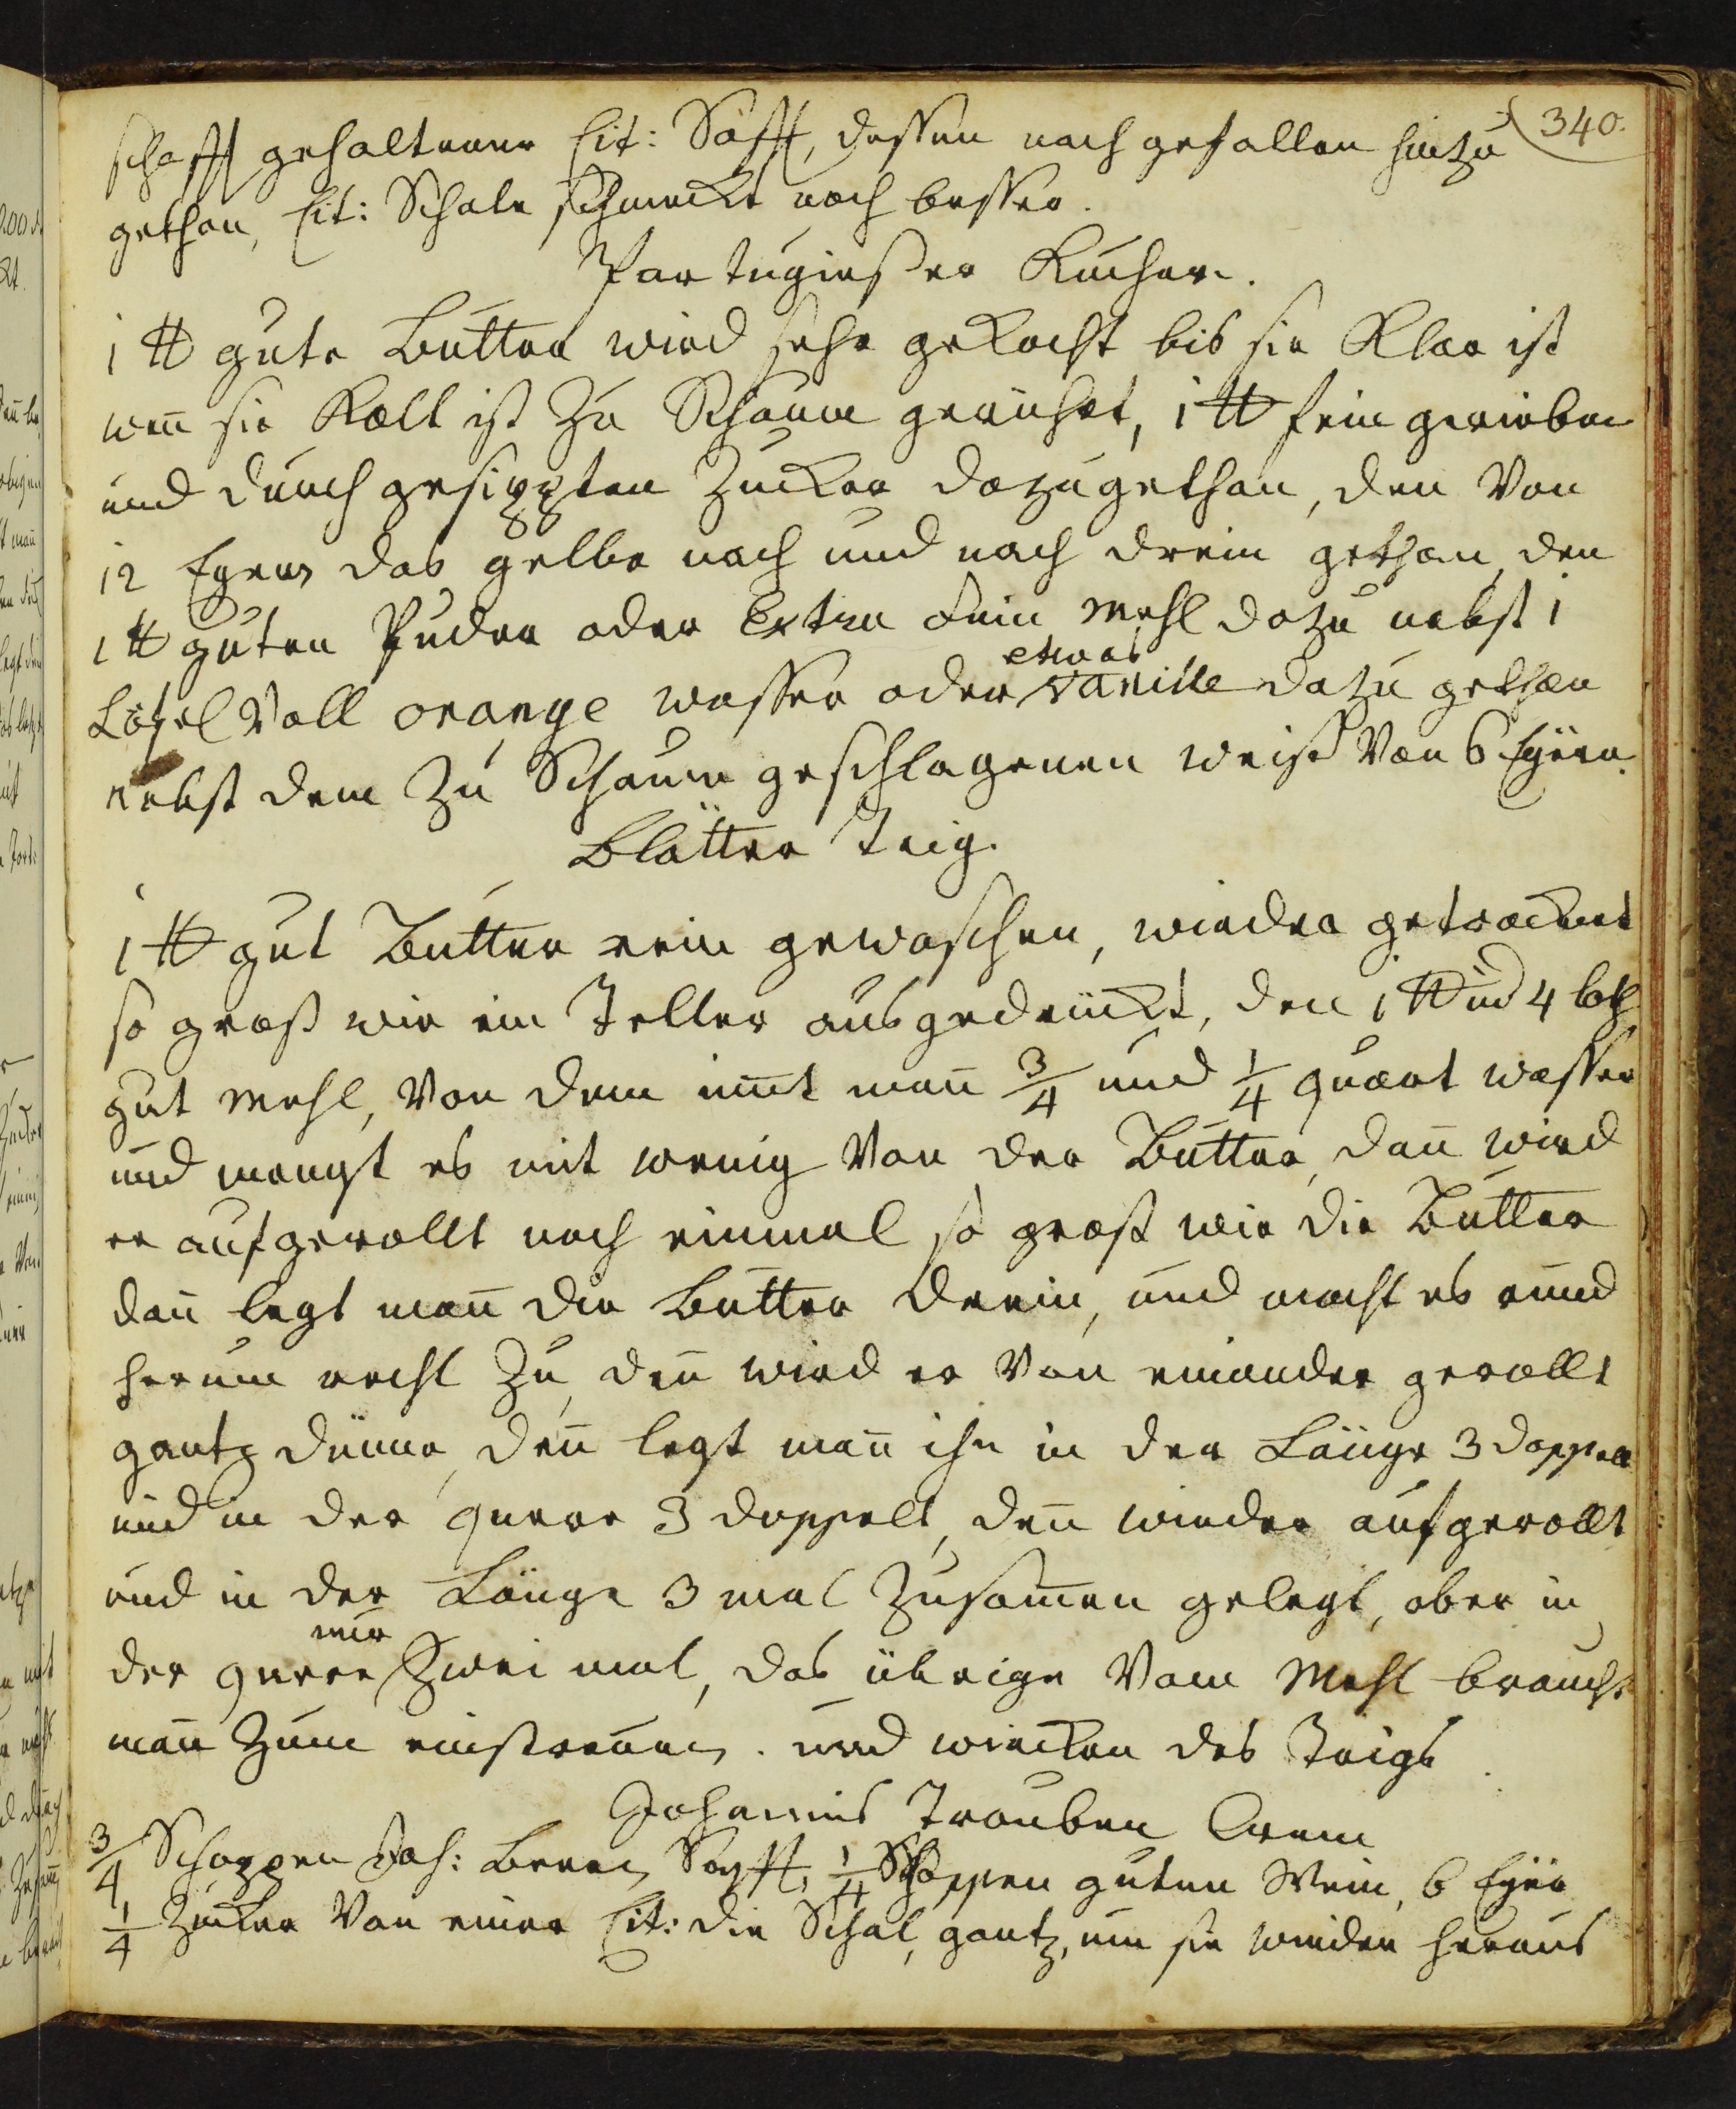 340.
schafft gehaltener Cit: Safft, dessen nach gefallen hinzu
gethan, Cit: Schale schmeckt noch besser.
Portugiesser Kuchen.
1 ℔ gute Butter wird sehr gekocht bis sie Klar ist
wen̄ sie Kalt ist zu Schaum gerühret, 1 ℔ fein gerieben
und durch gesippten Zucker dazugethan, den Von
12 Eyern das gelbe nach und nach drein gethan, den
1 ℔ guten Puder oder Extra fein Mehl dazu nebst 1
Löfel Voll orange wasser oder etwas vanille dazu gethan
nebst dem zu Schaum geschlagenen weiss Von 6 Eyern.
Blätter Teig.
1 ℔ gut Butter rein gewaschen, wieder getrocknet
so gross wie ein Teller ausgedrückt, den 1 ℔ und 4 loth
gut Mehl, Von dem nim̄t man̄ 3/4 und 1/4 quart wasser
und mengt es mit wenig Von der Butter, dan̄ wird
er aufgerollt noch einmal so gross wie die Butter
dan̄ legt man̄ die Butter drein, und macht es rund
herum recht zu, den̄ wird er Von einander gerollt
gantz dünne, den̄ legt man̄ ihn in der Länge 3 doppelt
und in der quere 3 doppelt, den̄ wieder aufgerollt
und in der Länge 3 mal zusam̄en gelegt, aber in
der quere nur zwei mal, das übrige Vom Mehl braucht
man̄ zum einstreuen. und wircken des Teigs.
Johannis Trauben Crem
3/4 Schoppen Joh: Beren Safft, 1/4 Schoppen guten Wein, 6 Eyer
1/4 Zucker Von einer Cit: die Schal, gantz, um sie wieder heraus